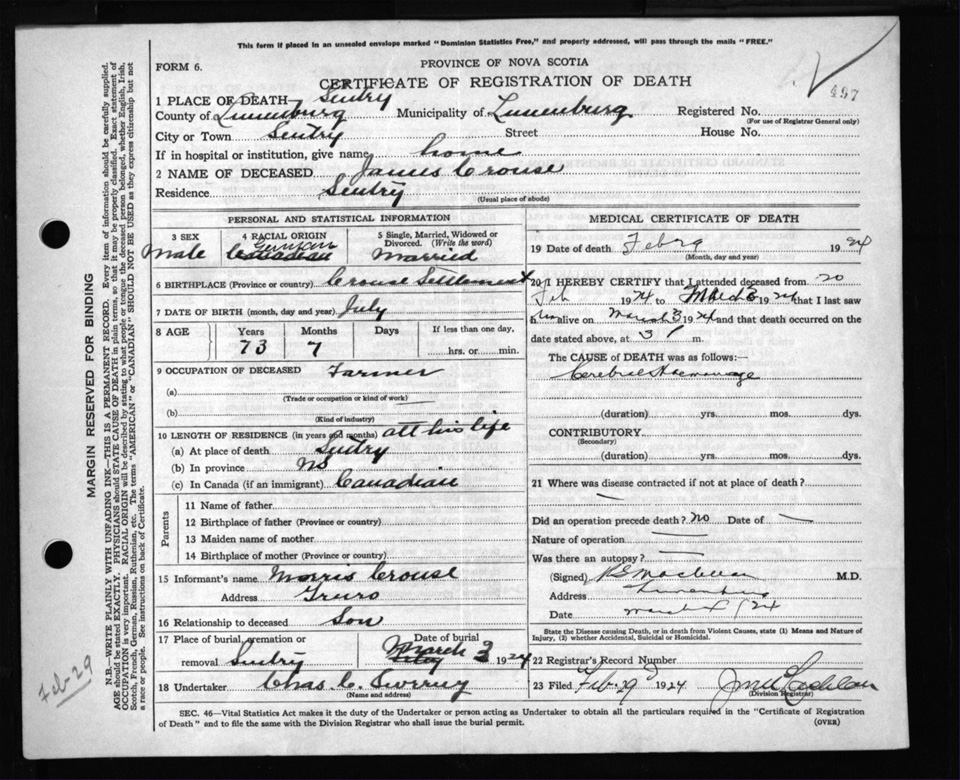 This form if placed in an unsealed envelope marked "Dominion Statistics Free," and properly addressed, will pass through the mails "FREE."
FORM 6.
PROVINCE OF NOVA SCOTIA
CERTIFICATE OF REGISTRATION OF DEATH
497
1 PLACE OF DEATH— Sentry
County of Lunenburg Municipality of Lunenburg Registered No.
(For use of Registrar General only)
City or Town Sentry Street House No.
If in hospital or institution, give name home
2 NAME OF DECEASED James Crouse
Residence Sentry
(Usual place of abode)
PERSONAL AND STATISTICAL INFORMATION
3 SEX Male
4 RACIAL ORIGIN German Canadian
5 Single, Married, Widowed or Divorced. (Write the word) Married
6 BIRTHPLACE (Province or country) Crouse Settlement
7 DATE OF BIRTH (month, day and year) July
8 AGE Years Months Days If less than one day,
73 7 hrs. or min.
9 OCCUPATION OF DECEASED Farmer
(a)
(Trade or occupation or kind of work)
(b)
(Kind of industry)
10 LENGTH OF RESIDENCE (in years and months) all his life
(a) At place of death Sentry
(b) In province NS
(c) In Canada (if an immigrant) Canadian
Parents
11 Name of father
12 Birthplace of father (Province or country)
13 Maiden name of mother
14 Birthplace of mother (Province or country)
15 Informant's name Morris Crouse
Address Truro
16 Relationship to deceased Son
17 Place of burial, cremation or removal Sentry Date of burial March 3 1924
18 Undertaker Chas. C.
(Name and address)
MEDICAL CERTIFICATE OF DEATH
19 Date of death Feb 29 1924
(Month, day and year)
20 I HEREBY CERTIFY that I attended deceased from 20
Feb 1924 to March 3 1924 that I last saw
him alive on March 3 1924 and that death occurred on the
date stated above, at 3 P m.
The CAUSE of DEATH was as follows:—
Cerebral Haemorrage
(duration) yrs. mos. dys.
CONTRIBUTORY
(Secondary)
(duration) yrs. mos. dys.
21 Where was disease contracted if not at place of death?
—
Did an operation precede death? No Date of —
Nature of operation —
Was there an autopsy? —
(Signed) M.D.
Address Lunenburg
Date March 1924
State the Disease causing Death, or in death from Violent Causes, state (1) Means and Nature of Injury, (2) whether Accidental, Suicidal or Homicidal.
22 Registrar's Record Number
23 Filed Feb 29 1924
(Division Registrar)
SEC. 46—Vital Statistics Act makes it the duty of the Undertaker or person acting as Undertaker to obtain all the particulars required in the "Certificate of Registration
of Death" and to file the same with the Division Registrar who shall issue the burial permit.
(OVER)
MARGIN RESERVED FOR BINDING
N.B.—WRITE PLAINLY WITH UNFADING INK—THIS IS A PERMANENT RECORD. Every item of information should be carefully supplied.
AGE should be stated EXACTLY. PHYSICIANS should STATE CAUSE OF DEATH in plain terms, so that it may be properly classified. Exact statement of
OCCUPATION is very important. RACIAL ORIGIN will be described by stating to what people or tongue the deceased person belonged, whether English, Irish,
Scotch, French, German, Russian, Ruthenian, etc. The terms "AMERICAN" or "CANADIAN" SHOULD NOT BE USED as they express citizenship but not
a race or people. See instructions on back of Certificate.
Feb-29